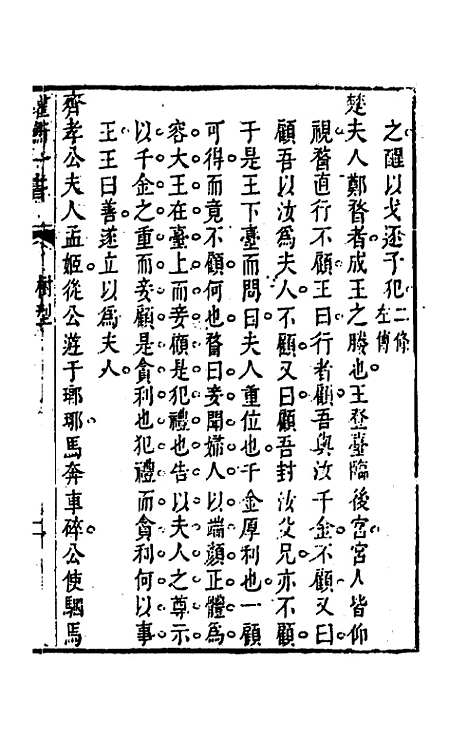 之醒以戈逐子犯二條左傳
楚夫人鄭瞀者成王之媵也王登臺臨後宮宮人皆仰
視瞀直行不顧王曰行者顧吾與汝千金不顧又曰
顧吾以汝爲夫人不顧又曰顧吾封汝父兄亦不顧
于是王下臺而問曰夫人重位也千金厚利也一顧
可得而竟不顧何也瞀曰妾聞婦人以端顏正體爲
容大王在臺上而妾顧是犯禮也告以夫人之尊示
以千金之重而妾顧是貪利也犯禮而貪利何以事
王王曰善遂立以爲夫人
齊孝公夫人孟姬從公遊于瑯琊馬奔車碎公使駟馬